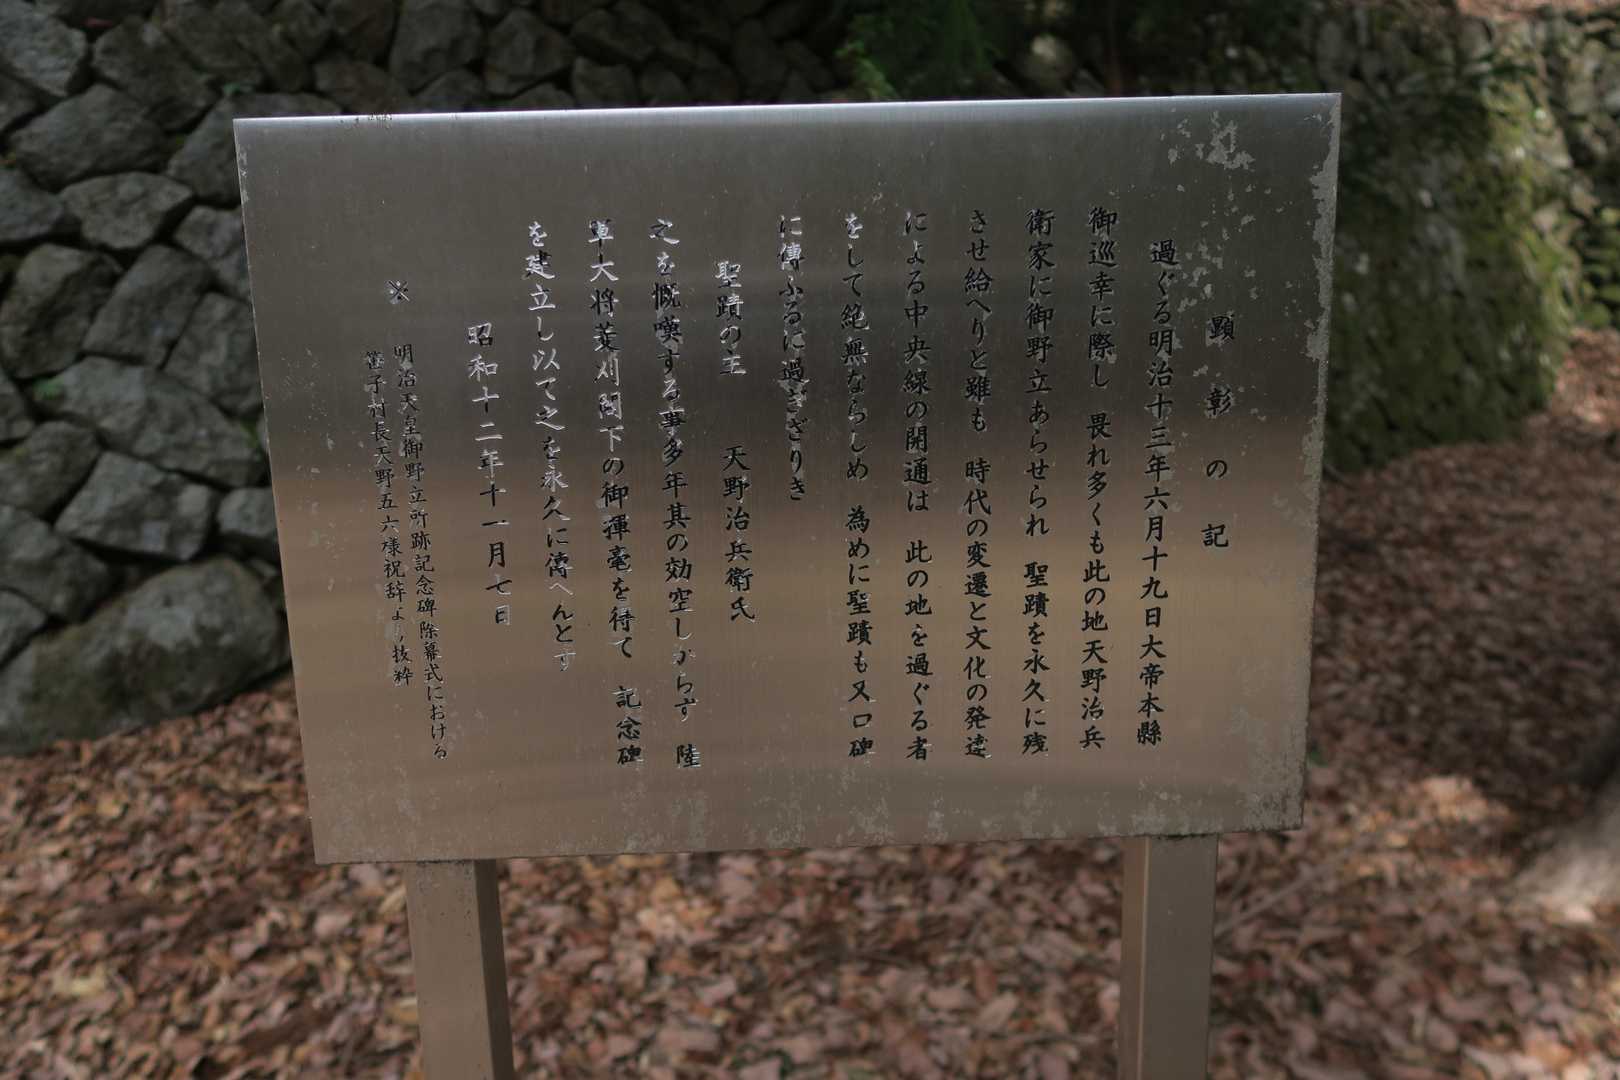 顕彰の記
過ぐる明治十三年六月十九日大帝本縣
御巡幸に際し　畏れ多くも此の地天野治兵
衛家に御野立あらせられ　聖蹟を永久に残
させ給へりと雖も　時代の変遷と文化の発達
による中央線の開通は　此の地を過ぐる者
をして絶無ならしめ　為めに聖蹟も又口碑
に傳ふるに過ぎざりき
聖蹟の主　天野治兵衛氏
之を慨嘆する事多年其の効空しからず　陸
軍大将菱刈閣下の御揮毫を得て　記念碑
を建立し以て之を永久に傳へんとす
昭和十二年十一月七日
※　明治天皇御野立所跡記念碑除幕式における
笹子村長天野五六様祝辞より抜粋